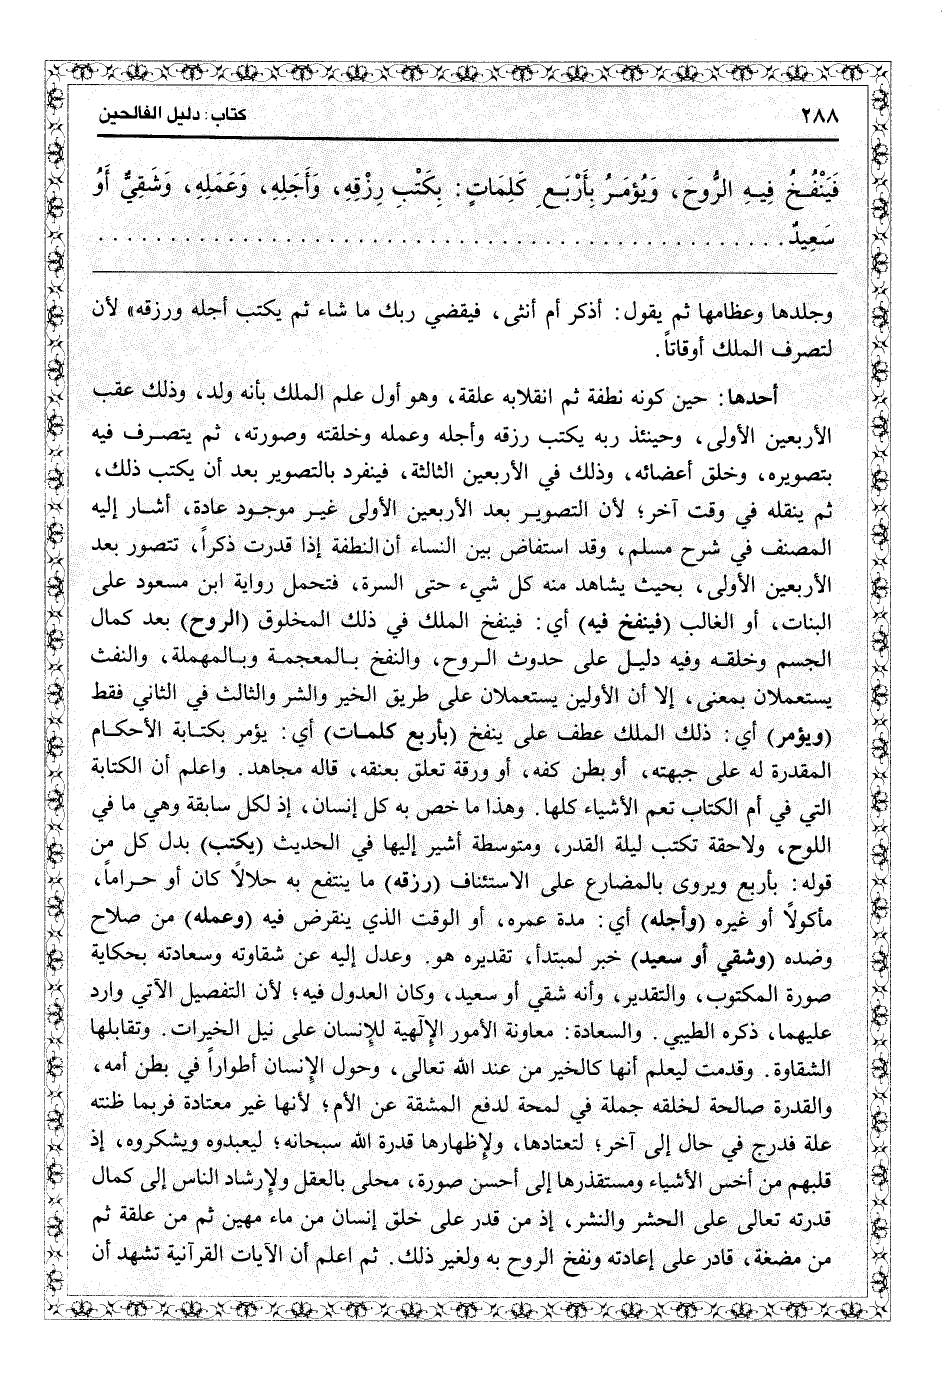 ٢٨٨
كتاب: دليل الفالحين
فَيَنْفُخُ فِيهِ الرُّوحَ، وَيُؤمَرُ بِأَرْبَعِ كَلِمَاتٍ: بِكَتْبِ رِزْقِهِ، وَأَجَلِهِ، وَعَمَلِهِ، وَشَقِيٌّ أَوْ
سَعِيدٌ. . . . . . . . . . . . . . . . . . . . . . . . . . . . . . . . . . . . . . . . . . .
وجلدها وعظامها ثم يقول: أذكر أم أنثى، فيقضي ربك ما شاء ثم يكتب أجله ورزقه» لأن
لتصرف الملك أوقاتاً.
أحدها: حين كونه نطفة ثم انقلابه علقة، وهو أول علم الملك بأنه ولد، وذلك عقب
الأربعين الأولى، وحينئذ ربه يكتب رزقه وأجله وعمله وخلقته وصورته، ثم يتصرف فيه
بتصويره، وخلق أعضائه، وذلك في الأربعين الثالثة، فينفرد بالتصوير بعد أن يكتب ذلك،
ثم ينقله في وقت آخر؛ لأن التصوير بعد الأربعين الأولى غير موجود عادة، أشار إليه
المصنف في شرح مسلم، وقد استفاض بين النساء أن النطفة إذا قدرت ذكراً، تتصور بعد
الأربعين الأولى، بحيث يشاهد منه كل شيء حتى السرة، فتحمل رواية ابن مسعود على
البنات، أو الغالب (فينفخ فيه) أي: فينفخ الملك في ذلك المخلوق (الروح) بعد كمال
الجسم وخلقه وفيه دليل على حدوث الروح، والنفخ بالمعجمة وبالمهملة، والنفث
يستعملان بمعنى، إلا أن الأولين يستعملان على طريق الخير والشر والثالث في الثاني فقط
(ويؤمر) أي: ذلك الملك عطف على ينفخ (بأربع كلمات) أي: يؤمر بكتابة الأحكام
المقدرة له على جبهته، أو بطن كفه، أو ورقة تعلق بعنقه، قاله مجاهد. واعلم أن الكتابة
التي في أم الكتاب تعم الأشياء كلها. وهذا ما خص به كل إنسان، إذ لكل سابقة وهي ما في
اللوح، ولاحقة تكتب ليلة القدر، ومتوسطة أشير إليها في الحديث (يكتب) بدل كل من
قوله: بأربع ويروى بالمضارع على الاستئناف (رزقه) ما ينتفع به حلالاً كان أو حراماً،
مأكولاً أو غيره (وأجله) أي: مدة عمره، أو الوقت الذي ينقرض فيه (وعمله) من صلاح
وضده (وشقي أو سعيد) خبر لمبتدأ، تقديره هو. وعدل إليه عن شقاوته وسعادته بحكاية
صورة المكتوب، والتقدير، وأنه شقي أو سعيد، وكان العدول فيه؛ لأن التفصيل الآتي وارد
عليهما، ذكره الطيبي. والسعادة: معاونة الأمور الإلٰهية للإنسان على نيل الخيرات. وتقابلها
الشقاوة. وقدمت ليعلم أنها كالخير من عند الله تعالى، وحول الإنسان أطواراً في بطن أمه،
والقدرة صالحة لخلقه جملة في لمحة لدفع المشقة عن الأم؛ لأنها غير معتادة فربما ظنته
علة فدرج في حال إلى آخر؛ لتعتادها، ولإظهارها قدرة الله سبحانه؛ ليعبدوه ويشكروه، إذ
قلبهم من أخس الأشياء ومستقذرها إلى أحسن صورة، محلى بالعقل ولإرشاد الناس إلى كمال
قدرته تعالى على الحشر والنشر، إذ من قدر على خلق إنسان من ماء مهين ثم من علقة ثم
من مضغة، قادر على إعادته ونفخ الروح به ولغير ذلك. ثم اعلم أن الآيات القرآنية تشهد أن